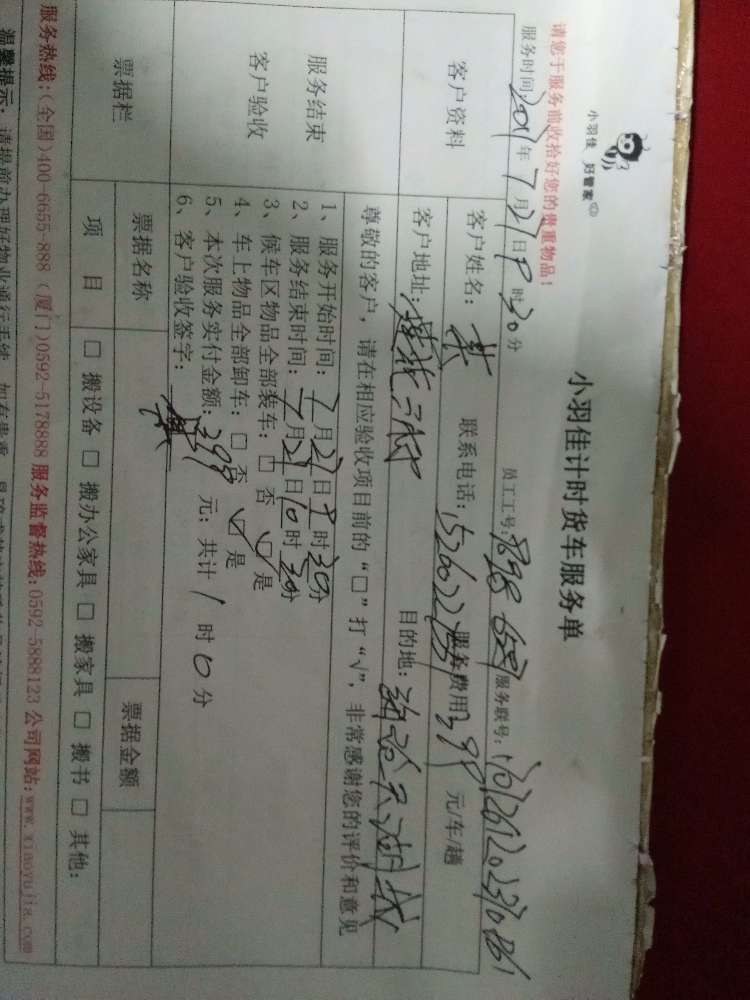 小羽佳 好管家
小羽佳计时货车服务单
请您于服务前收拾好您的贵重物品！
服务时间: 年7月21日9时30分 员工工号: 服务联号:
客户资料
客户姓名: 联系电话: 服务费用399元/车/趟
客户地址: 目的地:
尊敬的客户，请在相应验收项目前的“□”打“√”，非常感谢您的评价和意见
服务结束
客户验收
1、服务开始时间: 7月21日9时30分
2、服务结束时间: 7月21日10时30分
3、候车区物品全部装车: □ 否 ☑ 是
4、车上物品全部卸车: □ 否 ☑ 是
5、本次服务实付金额: 399 元; 共计 1 时 0 分
6、客户验收签字:
票据栏
票据名称 票据金额
项 目 □ 搬设备 □ 搬办公家具 □ 搬家具 □ 搬书 □ 其他:
服务热线:(全国)400-6655-888 (厦门)0592-5178888 服务监督热线:0592-5888123 公司网站:www.xiaoyujia.com
温馨提示: 请提前办理好物业通行手续